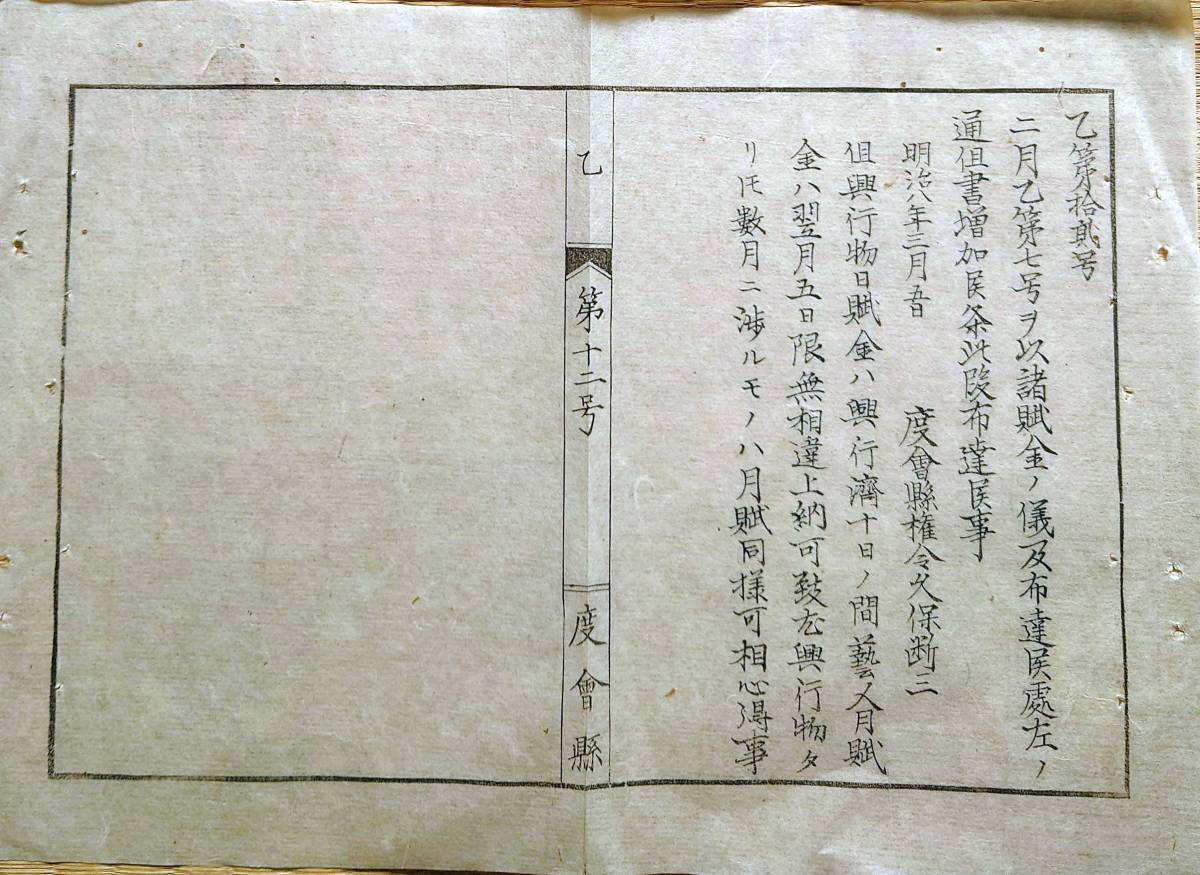 乙第拾貳号
二月乙第七号ヲ以諸賦金ノ儀及布達候處左ノ
通但書増加候条此段布達候事
明治八年三月五日　度會縣権令久保断三
但興行物日賦金ハ興行濟十日ノ間藝人月賦
金ハ翌月五日限無相違上納可致尤興行物タ
リ𪜈數月ニ渉ルモノハ月賦同様可相心得事
乙　第十二号　度會縣